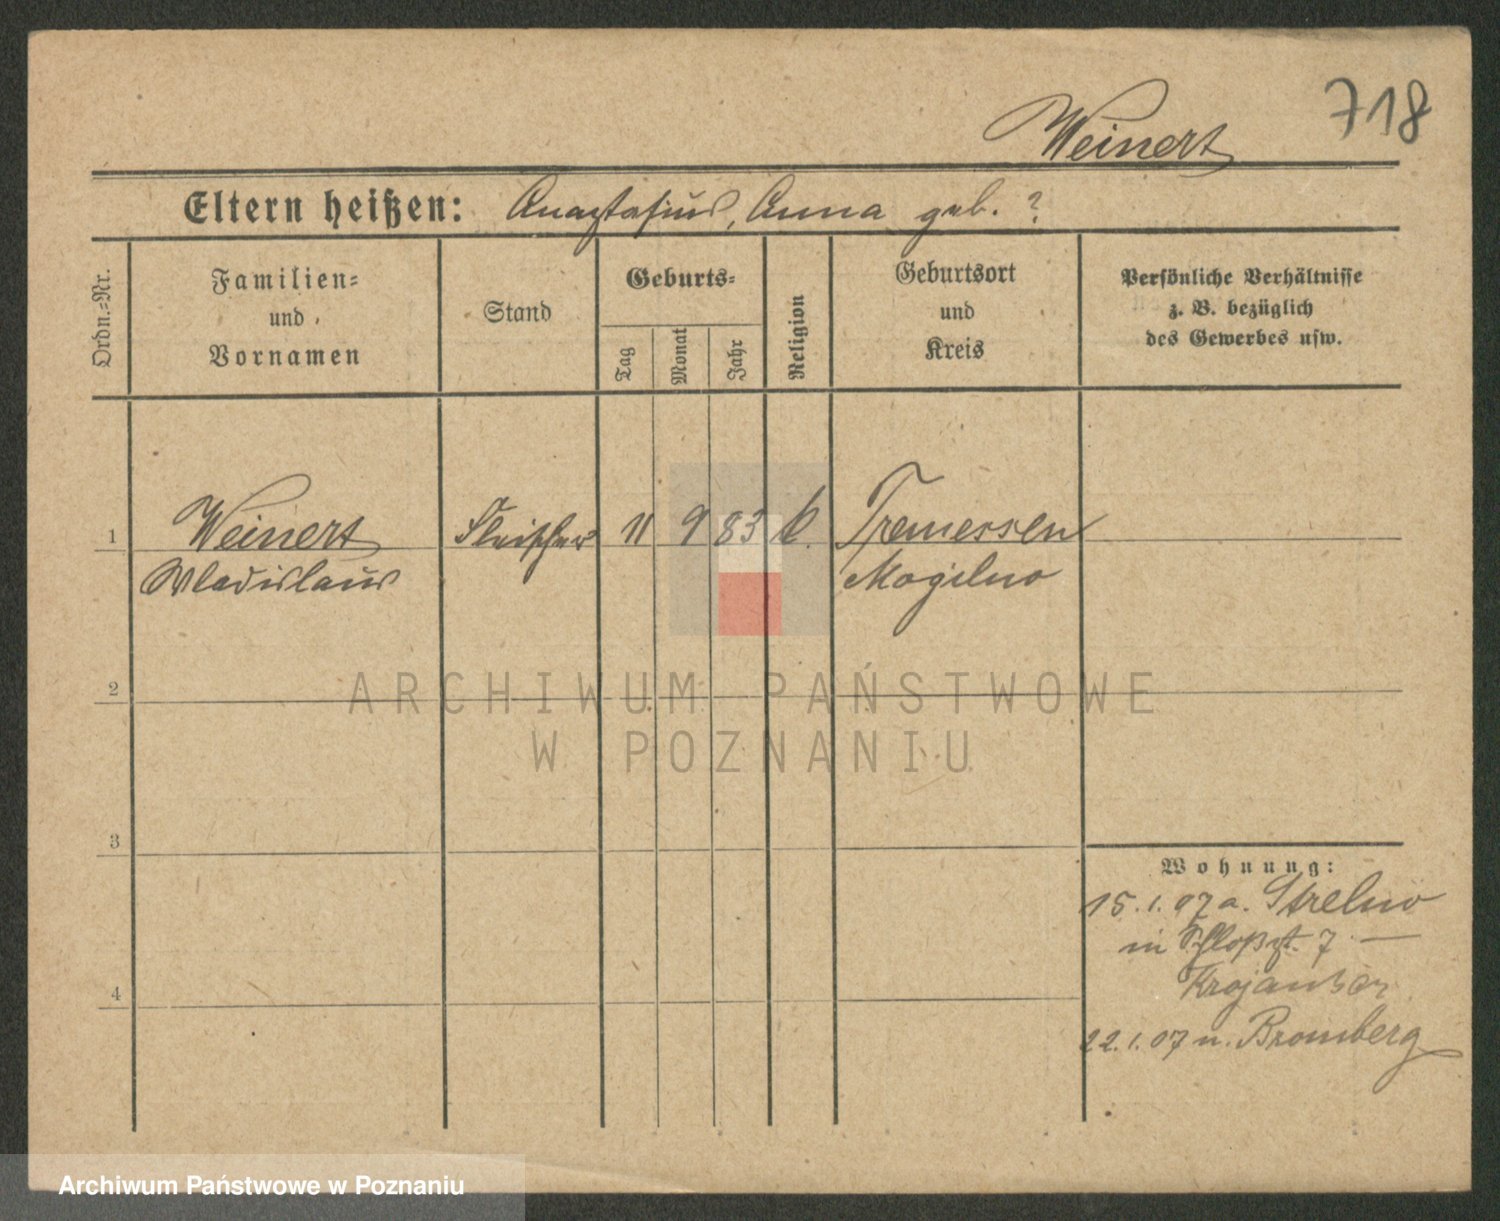 718
Weinert
Eltern heißen: Anastasius, Anna geb. ?
Ordn.-Nr.
Familien-
und
Vornamen
Stand
Geburts-
Tag
Monat
Jahr
Religion
Geburtsort
und
Kreis
Persönliche Verhältnisse
z. B. bezüglich
des Gewerbes usw.
1
Weinert
Wladislaus
Fleischer
11
9
83
k.
Tremessen
Mogilno
2
3
4
Wohnung:
15.1.07 a. Strelno
in Schloßst. 7 —
Krojanker
22.1.07 n. Bromberg
ARCHIWUM PAŃSTWOWE
W POZNANIU
Archiwum Państwowe w Poznaniu